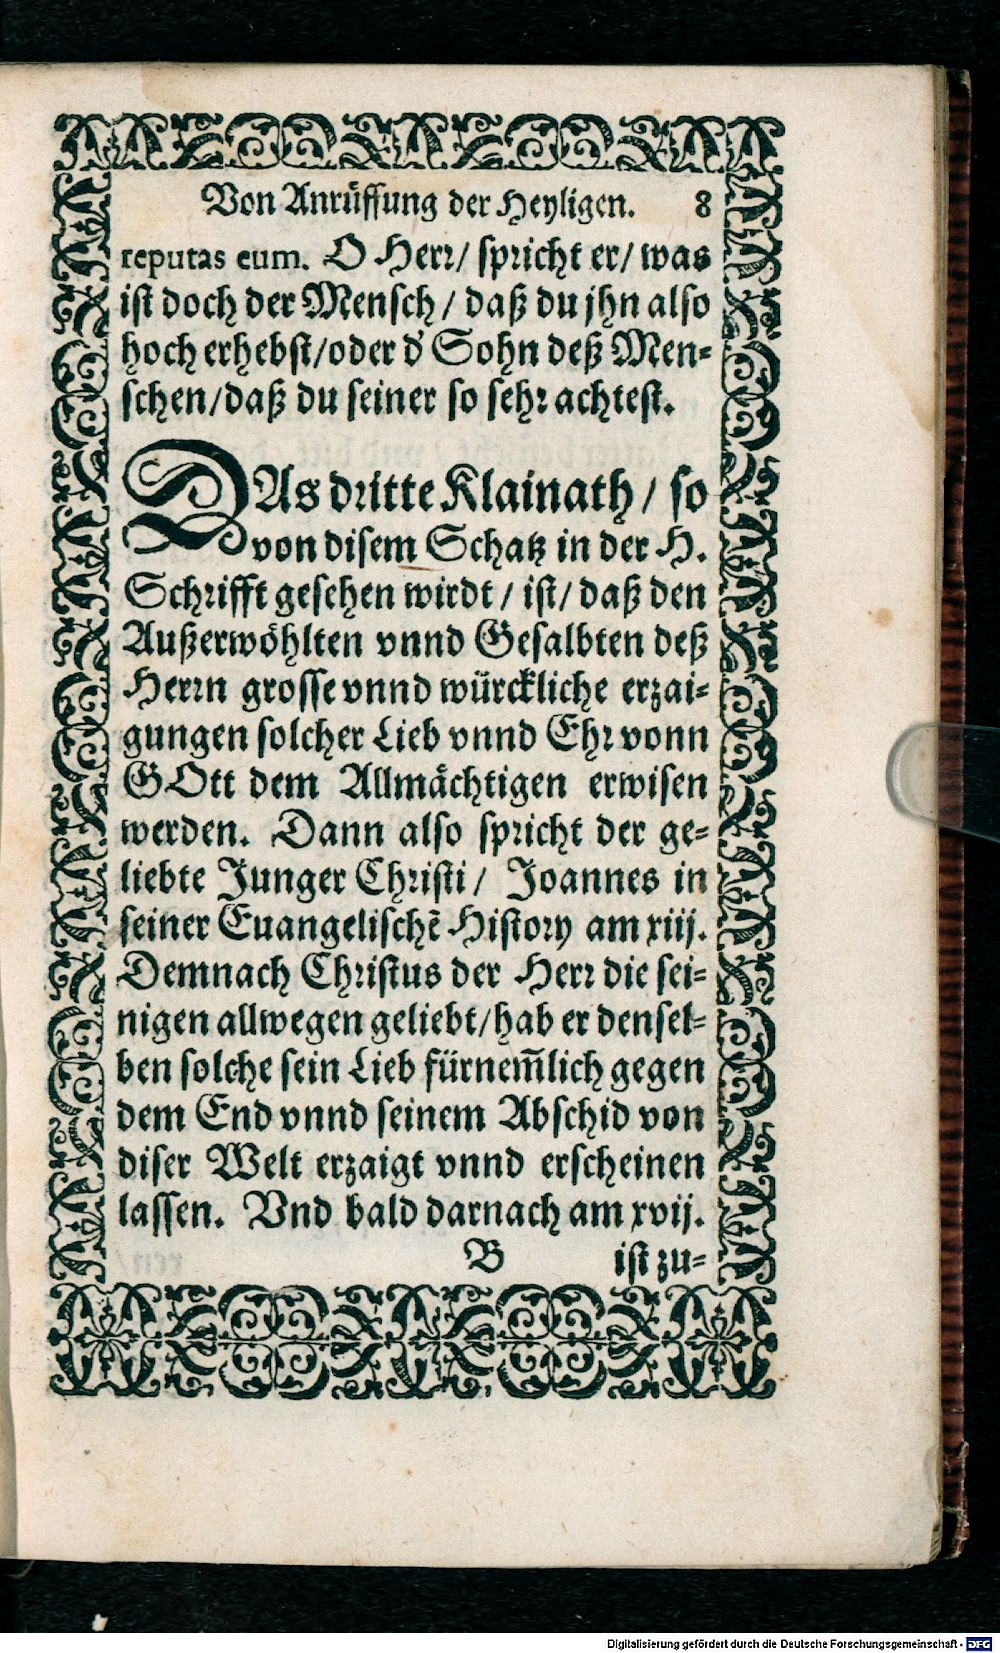 Von Anrüffung der Heyligen. 8
reputas eum. O Herr/ spricht er/ was
ist doch der Mensch/ daß du jhn also
hoch erhebst/oder d' Sohn deß Men-
schen/daß du seiner so sehr achtest.
DAs dritte Klainath/ so
von disem Schatz in der H.
Schrifft gesehen wirdt/ ist/ daß den
Außerwöhlten vnnd Gesalbten deß
Herrn grosse vnnd würckliche erzai-
gungen solcher Lieb vnnd Ehr vonn
GOtt dem Allmächtigen erwisen
werden. Dann also spricht der ge-
liebte Junger Christi/ Joannes in
seiner Euangelischē History am xiij.
Demnach Christus der Herr die sei-
nigen allwegen geliebt/hab er densel-
ben solche sein Lieb fürnem̃lich gegen
dem End vnnd seinem Abschid von
diser Welt erzaigt vnnd erscheinen
lassen. Vnd bald darnach am xvij.
B ist zu-
Digitalisierung gefördert durch die Deutsche Forschungsgemeinschaft - DFG